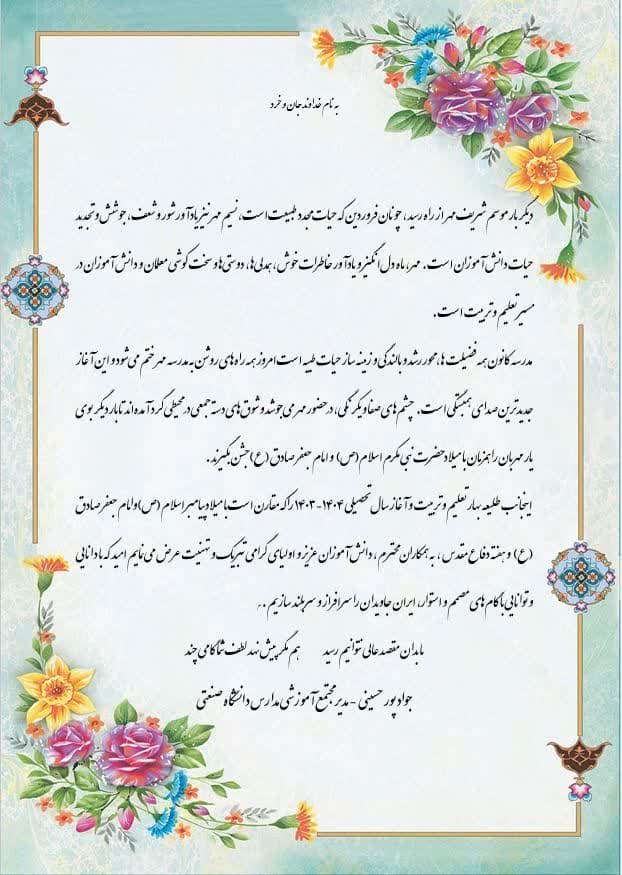 به نام خداوند جان و خرد
دیگر بار موسم شریف مهر از راه رسید، چونان فروردین که حیات مجدد طبیعت است، نسیم مهر نیز یادآور شور و شعف، جوشش و تجدید
حیات دانش آموزان است. مهر، ماه دل انگیز و یادآور خاطرات خوش، همدلی ها، دوستی ها و سخت کوشی معلمان و دانش آموزان در
مسیر تعلیم و تربیت است.
مدرسه کانون همه فضیلت ها، محور رشد و بالندگی و زمینه ساز حیات طیبه است امروز همه راه های روشن به مدرسه مهر ختم می شود و این آغاز
جدیدترین صدای همبستگی است. چشم های صفا و یکرنگی، در حضور مهر می جوشد و شوق های دسته جمعی در محیطی گرد آمده اند تا بار دیگر بوی
یار مهربان را همزمان با میلاد حضرت نبی مکرم اسلام (ص) و امام جعفر صادق (ع) جشن بگیرند.
اینجانب طلیعه بهار تعلیم و تربیت و آغاز سال تحصیلی ۱۴۰۴-۱۴۰۳ را که مقارن است با میلاد پیامبر اسلام (ص) و امام جعفر صادق
(ع) و هفته دفاع مقدس، به همکاران محترم، دانش آموزان عزیز و اولیای گرامی تبریک و تهنیت عرض می نمایم امید که با دانایی
و توانایی با گام های مصمم و استوار، ایران جاویدان را سرافراز و سربلند سازیم.
ما بدان مقصد عالی نتوانیم رسید هم مگر پیش نهد لطف شما گامی چند
جواد پور حسینی - مدیر مجتمع آموزشی مدارس دانشگاه صنعتی